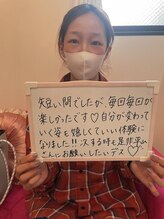 短い間でしたが、毎回毎回が
楽しかったです♡自分が変わって
いく姿も嬉しくていい体験に
なりました!!次する時も是非平山
さんにお願いしたいデス♡